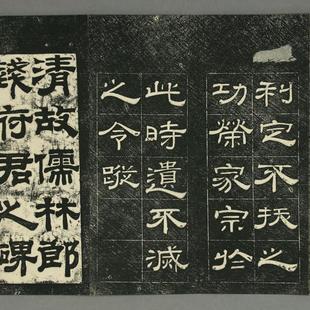 利定不拔之
功榮家宗於
此時遺不滅
之令蹤
清故儒林郎
錢府君之碑